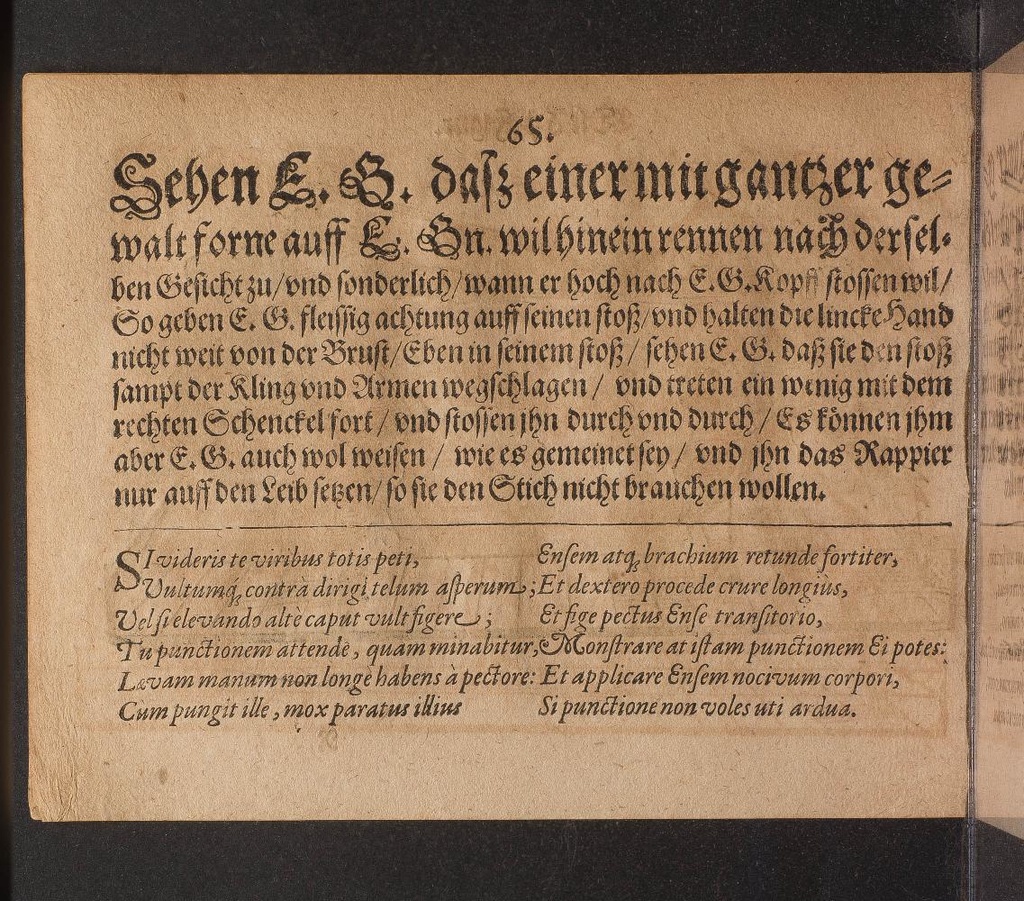 65.
Sehen E. G. daſz einer mit gantzer ge-
walt forne auff E. Gn. wil hinein rennen nach derſel-
ben Geſicht zu/ vnd ſonderlich/ wann er hoch nach E. G. Kopff ſtoſſen wil/
So geben E. G. fleiſſig achtung auff ſeinen ſtoß/ vnd halten die lincke Hand
nicht weit von der Bruſt/ Eben in ſeinem ſtoß/ ſehen E. G. daß ſie den ſtoß
ſampt der Kling vnd Armen wegſchlagen/ vnd treten ein wenig mit dem
rechten Schenckel fort/ vnd ſtoſſen jhn durch vnd durch/ Es können jhm
aber E. G. auch wol weiſen/ wie es gemeinet ſey/ vnd jhn das Rappier
nur auff den Leib ſetzen/ ſo ſie den Stich nicht brauchen wollen.
SI videris te viribus totis peti,
Vultumq́; contrà dirigi telum aſperum;
Vel ſi elevando altè caput vult figere;
Tu punctionem attende, quam minabitur,
Lævam manum non longè habens à pectore:
Cum pungit ille, mox paratus illius
Enſem atq; brachium retunde fortiter,
Et dextero procede crure longiùs,
Et fige pectus Enſe tranſitorio,
Monſtrare at iſtam punctionem Ei potes:
Et applicare Enſem nocivum corpori,
Si punctione non voles uti ardua.